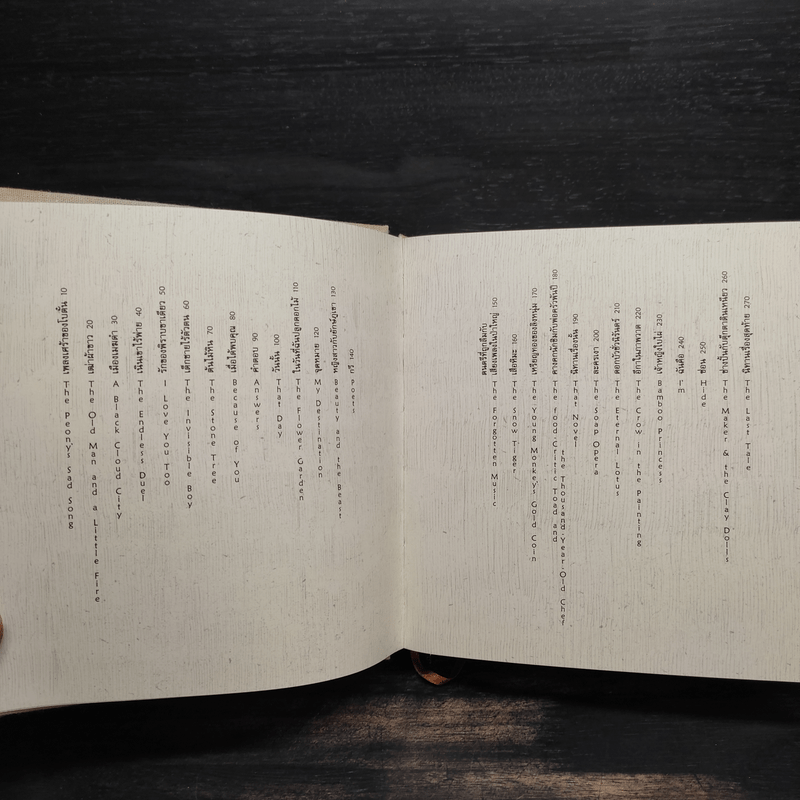 เพลงเศร้าของโบตั๋น 10 The Peony's Sad Song
เฒ่าผ่าฮาว 20 The Old Man and a Little Fire
เมืองเมฆดำ 30 A Black Cloud City
เนินเขาไร้พ่าย 40 The Endless Duel
รักของพิราบขาเดียว 50 I Love You Too
เด็กชายไร้ตัวตน 60 The Invisible Boy
ต้นไม้หิน 70 The Stone Tree
เมื่อได้พบคุณ 80 Because of You
คำตอบ 90 Answers
วันนั้น 100 That Day
ในวันที่ฉันปลูกดอกไม้ 110 The Flower Garden
จุดหมาย 120 My Destination
หญิงสาวกับยักษ์ภูเขา 130 Beauty and the Beast
กวี 140 Poets
ดนตรีที่ถูกลืมกับ
เสียงเพลงในป่าใหญ่ 150 The Forgotten Music
เสือหิมะ 160 The Snow Tiger
เหรียญทองของลิงหนุ่ม 170 The Young Monkey's Gold Coin
คางคกนักชิมกับพ่อครัวพันปี 180 The Food-Critic Toad and
the Thousand-Year-Old Chef
นิทานเรื่องนั้น 190 That Novel
ละครเงา 200 The Soap Opera
ดอกบัวชั่วนิรันดร์ 210 The Eternal Lotus
อีกาในภาพวาด 220 The Crow in the Painting
เจ้าหญิงใบไผ่ 230 Bamboo Princess
ฉันคือ 240 I'm
ซ่อน 250 Hide
ช่างปั้นกับตุ๊กตาดินเหนียว 260 The Maker & the Clay Dolls
นิทานเรื่องสุดท้าย 270 The Last Tale